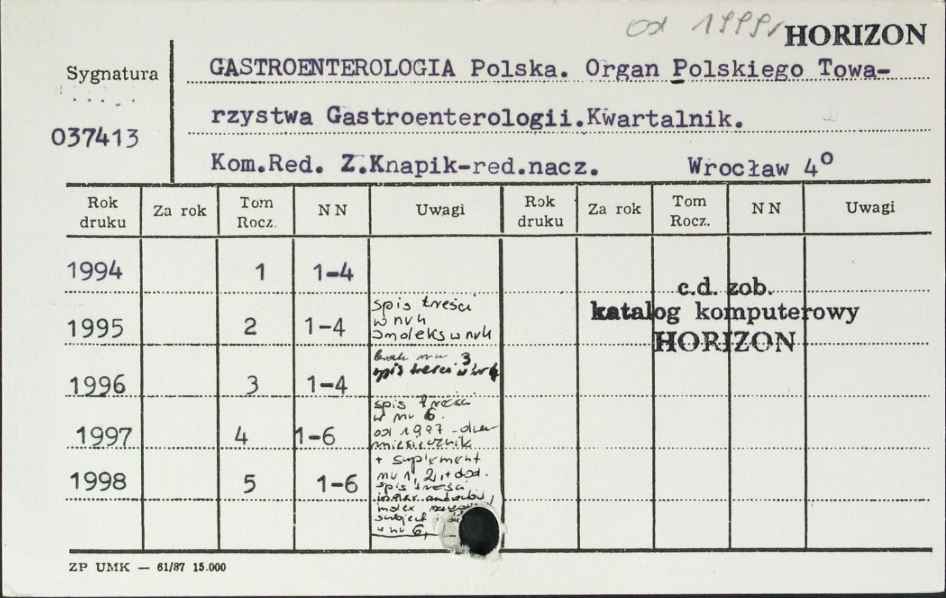 od 1999r HORIZON
Sygnatura
037413
GASTROENTEROLOGIA Polska. Organ Polskiego Towa-
rzystwa Gastroenterologii.Kwartalnik.
Kom.Red. Z.Knapik-red.nacz. Wrocław 4°
Rok druku Za rok Tom Rocz. NN Uwagi Rok druku Za rok Tom Rocz. NN Uwagi
1994 1 1-4
c.d. zob.
katalog komputerowy
HORIZON
1995 2 1-4
spis treści
w nr 4
1996 3 1-4
brak nru 3
spis treści w nr 4
1997 4 1-6
spis treści
w nr 6.
od 1997 - dwu
miesięcznik
1998 5 1-6
+ suplement
nr 1, 2, + dod.
spis treści
w nr 6,
ZP UMK — 61/87 15.000